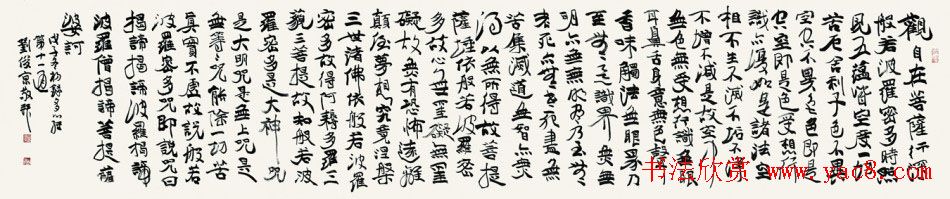 觀自在菩薩行深
般若波羅密多時照
見五蘊皆空度一切
苦厄舍利子色不異
空空不異色色即是
空空即是色受想行
識亦復如是諸法空
相不生不滅不垢不淨
不增不減是故空中無
色無受想行識無眼
耳鼻舌身意無色聲
香味觸法無眼界乃
至無意識界無無
明亦無無明盡乃至無
老死亦無老死盡無
苦集滅道無智亦無
得以無所得故菩提
薩埵依般若波羅密
多故心無罣礙無罣
礙故無有恐怖遠離
顛倒夢想究竟涅槃
三世諸佛依般若波羅
密多故得阿耨多羅
藐三菩提故知般若波
羅密多是大神咒
是大明咒是無上咒是
無等等咒能除一切苦
真實不虛故說般若
波羅密多咒即說咒曰
揭諦揭諦波羅揭諦
波羅僧揭諦菩提薩
婆訶
戊子年初
劉俊京敬書
书法欣赏 www.yac8.com